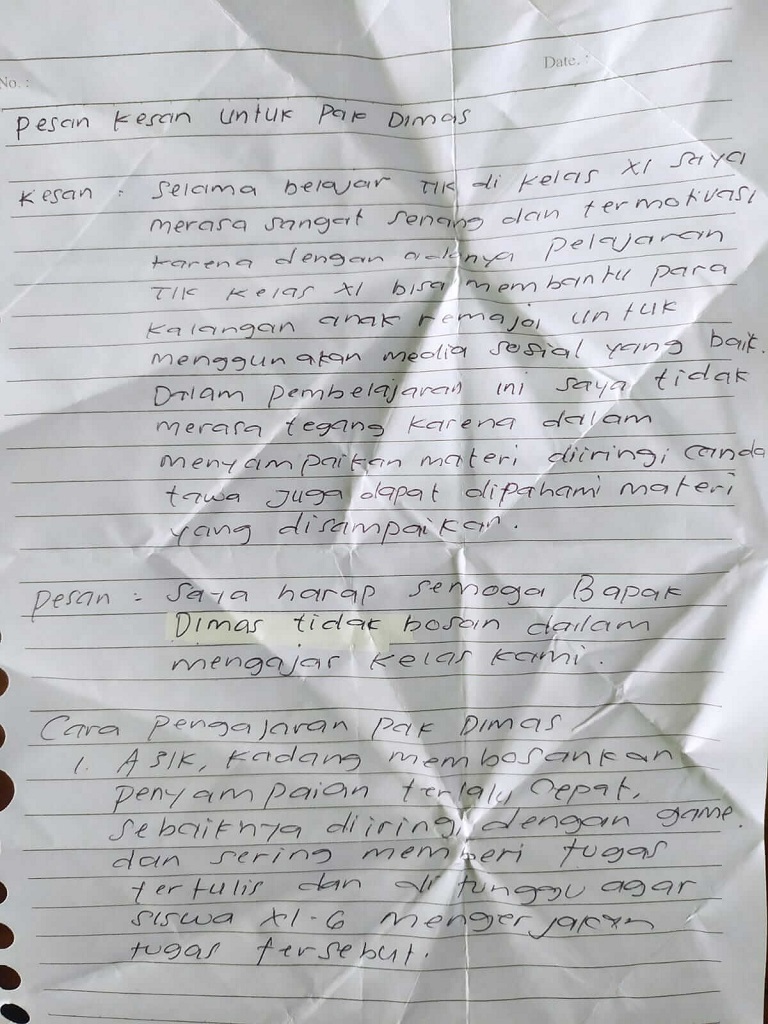 No. :
Date. :
Pesan Kesan untuk Pak Dimas
Kesan : Selama belajar TIK di Kelas XI saya
merasa sangat senang dan termotivasi
karena dengan adanya pelajaran
TIK Kelas XI bisa membantu para
kalangan anak remajai untuk
menggunakan media sosial yang baik.
Dalam pembelajaran ini saya tidak
merasa tegang karena dalam
menyampaikan materi diiringi canda
tawa juga dapat dipahami materi
yang disampaikan.
Pesan : Saya harap semoga Bapak
Dimas tidak bosan dailam
mengajar kelas kami.
Cara Pengajaran Pak Dimas
1. Asik, kadang membosankan
penyampaian terlalu cepat,
sebaiknya diiringi dengan game.
dan sering memberi tugas
tertulis dan di tunggu agar
siswa XI-6 mengerjakan
tugas tersebut.